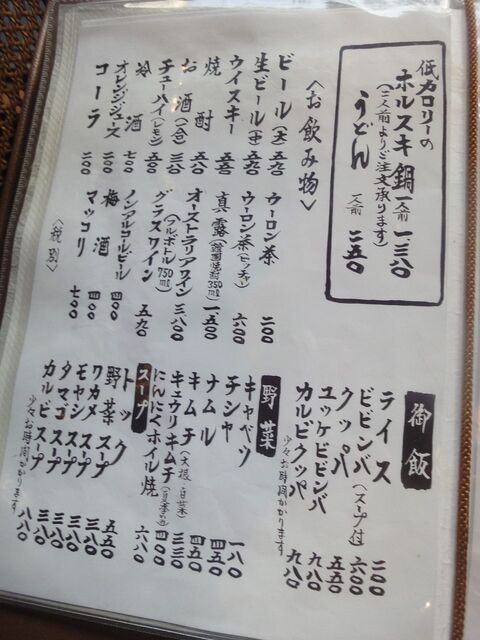 低カロリーの
ホルスキ鍋 一人前 一.三〇
(二人前よりご注文承ります)
うどん 一人前 二五〇
<お飲み物>
ビール(大) 五五〇
生ビール(中) 五五〇
ウイスキー
焼酎 五五〇
お酒(一合) 三五〇
チューハイ(レモン)
冷酒 七〇〇
オレンジジュース 二〇〇
コーラ 二〇〇
ウーロン茶 二〇〇
ウーロン茶(ピッチャー) 六〇〇
真露(韓国焼酎350ml) 一.五〇〇
オーストラリアワイン(フルボトル750ml) 三.八〇〇
グラスワイン 五五〇
ノンアルコールビール 四〇〇
梅酒 四〇〇
マッコリ 七〇〇
<税別>
御飯
ライス 二〇〇
ビビンバ(スープ付) 六〇〇
クッパ 五五〇
ユッケビビンバ 九八〇
カルビクッパ 九八〇
少々お時間かかります
野菜
キャベツ 一八〇
チシャ
ナムル 四五〇
キムチ(大根・白菜) 四五〇
キュウリキムチ(夏季のみ) 三三〇
にんにくホイル焼 四〇〇
スープ
トック 六八〇
野菜スープ 五五〇
ワカメスープ 三八〇
モヤシスープ 三八〇
タマゴスープ 三八〇
カルビスープ 八八〇
少々お時間かかります